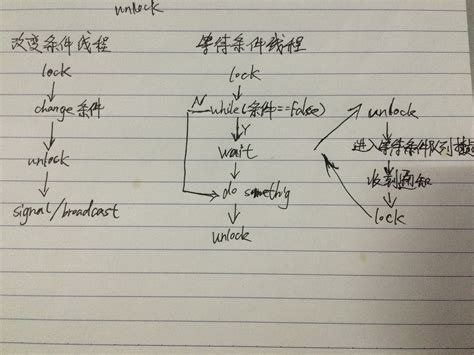 unlock
改变条件线程
lock
change条件
unlock
signal/broadcast
等待条件线程
lock
N while(条件==false)
Y
wait
do somethig
unlock
unlock
进入等待条件队列
收到通知
lock